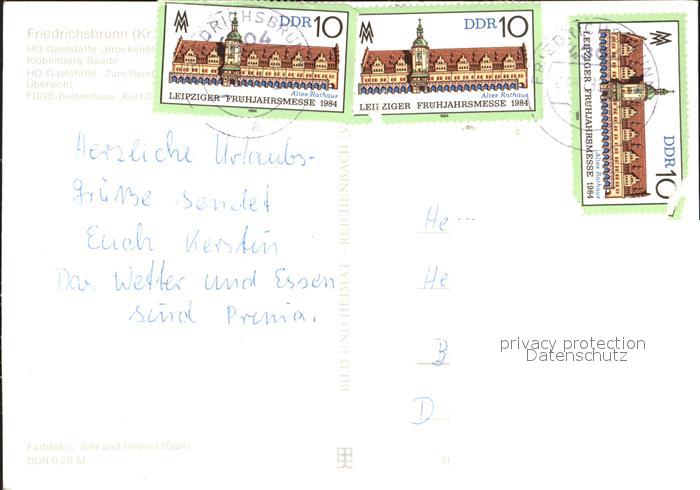 Friedrichsbrunn (Kr.
HO-Gaststätte „Brockenbl
Klobenberg Baude
HO-Gaststätte „Zum Ram
Übersicht)
FDGB-Bettenhaus „Kurt D
DDR 10
Altes Rathaus
LEIPZIGER FRÜHJAHRSMESSE 1984
1984
DDR 10
Altes Rathaus
LEIPZIGER FRÜHJAHRSMESSE 1984
1984
DDR 10
Altes Rathaus
LEIPZIGER FRÜHJAHRSMESSE 1984
1984
Herzliche Urlaubs-
grüße sendet
Euch Kerstin
Das Wetter und Essen
sind Prima.
He
He
B
D
privacy protection
Datenschutz
BILD UND HEIMAT · REICHENBACH (V
Farbfotos: Bild und Heimat (Darr)
DDR 0,20 M